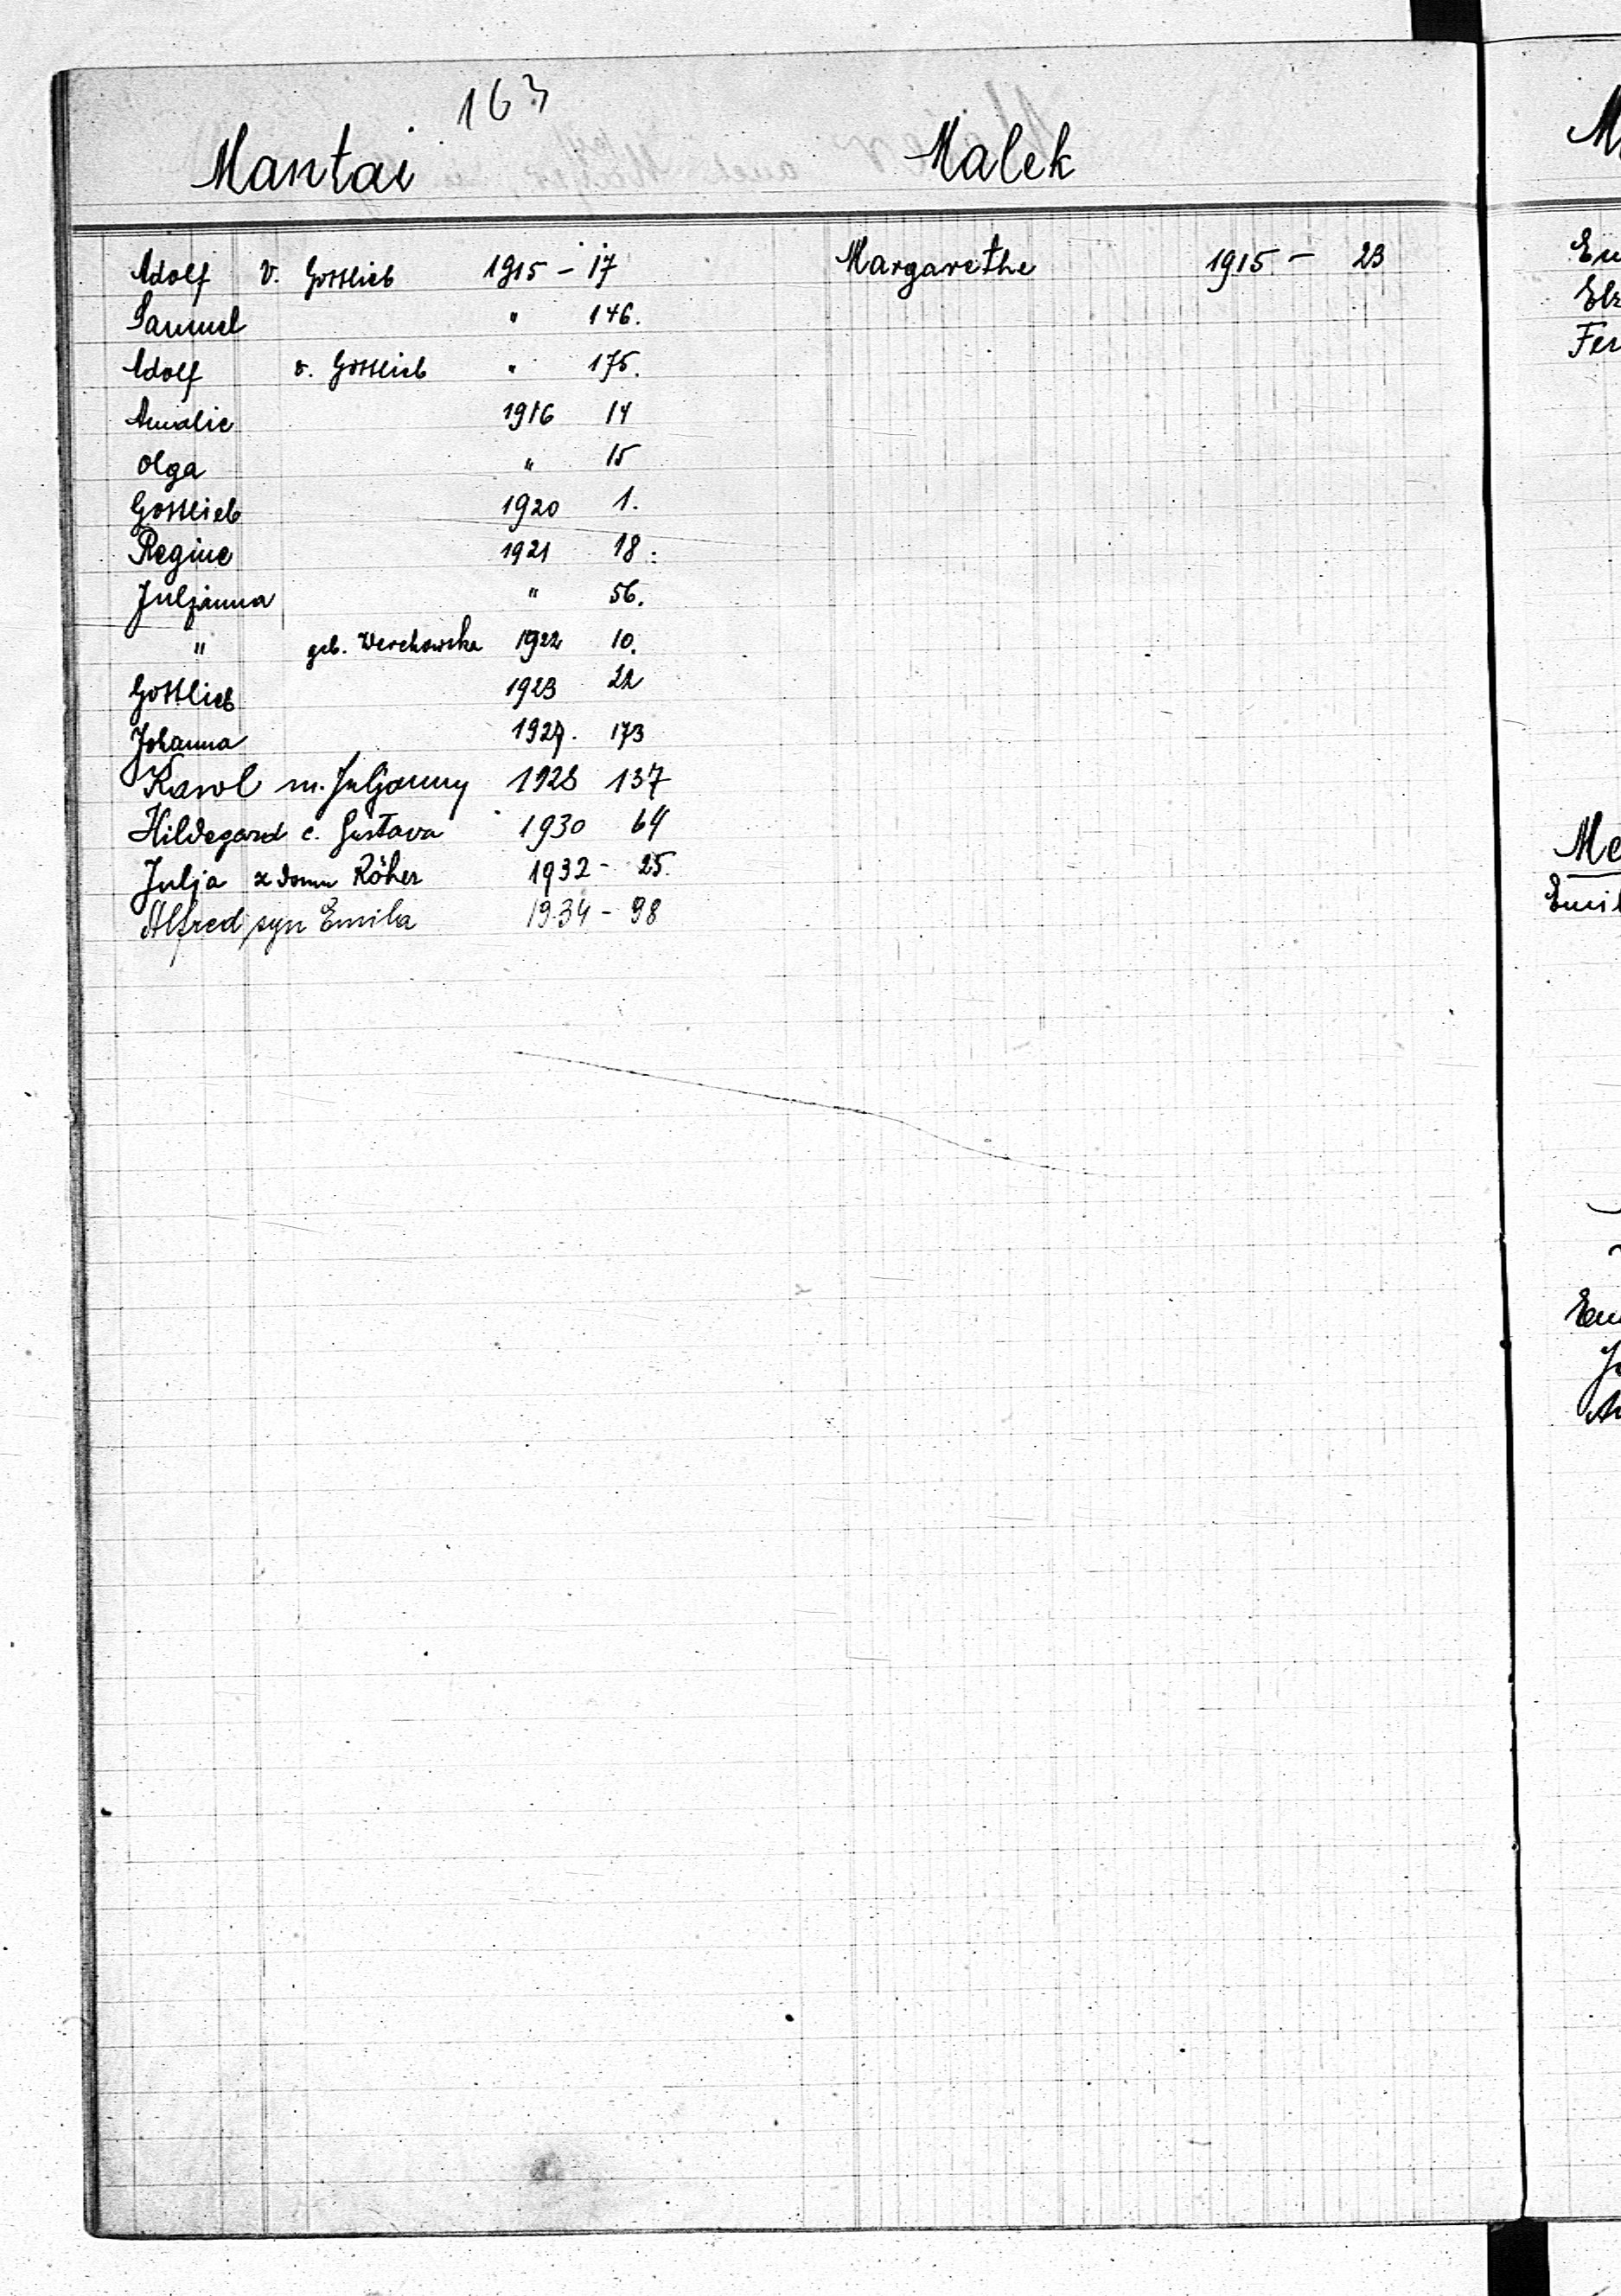 163
Mantai
Adolf v. Gottlieb 1915 - 17
Samuel " 146.
Adolf v. Gottlieb " 175.
Amalie 1916 14
Olga " 15
Gottlieb 1920 1.
Regine 1921 18.
Juljanna " 56.
" geb. Werchowska 1922 10.
Gottlieb 1923 22
Johanna 173
Karol m. Juljanny 1928 137
Hildegard c. Gustava 1930 64
Julja z domu Röher 1932 - 25.
Alfred syn Emila 1934 - 98
Malek
Margarethe 1915 - 23
M
Eu
Elz
Fer
Me
Emil